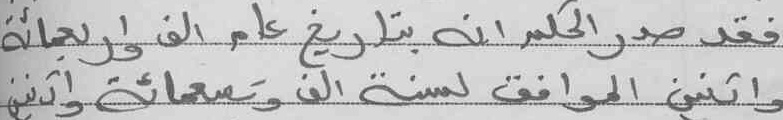 فقد صدر الحكم انه بتاريخ عام الف واربعمائة
واثنين الموافق لسنة الف وتسعمائة واثنين